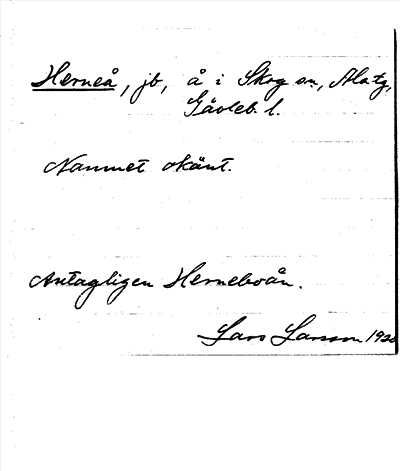 Herneå, jb, å i Skog sn., Ala tg,
Gävleb. l.
Namnet okänt.
Antagligen Herneboån.
Lars Larsson 1920